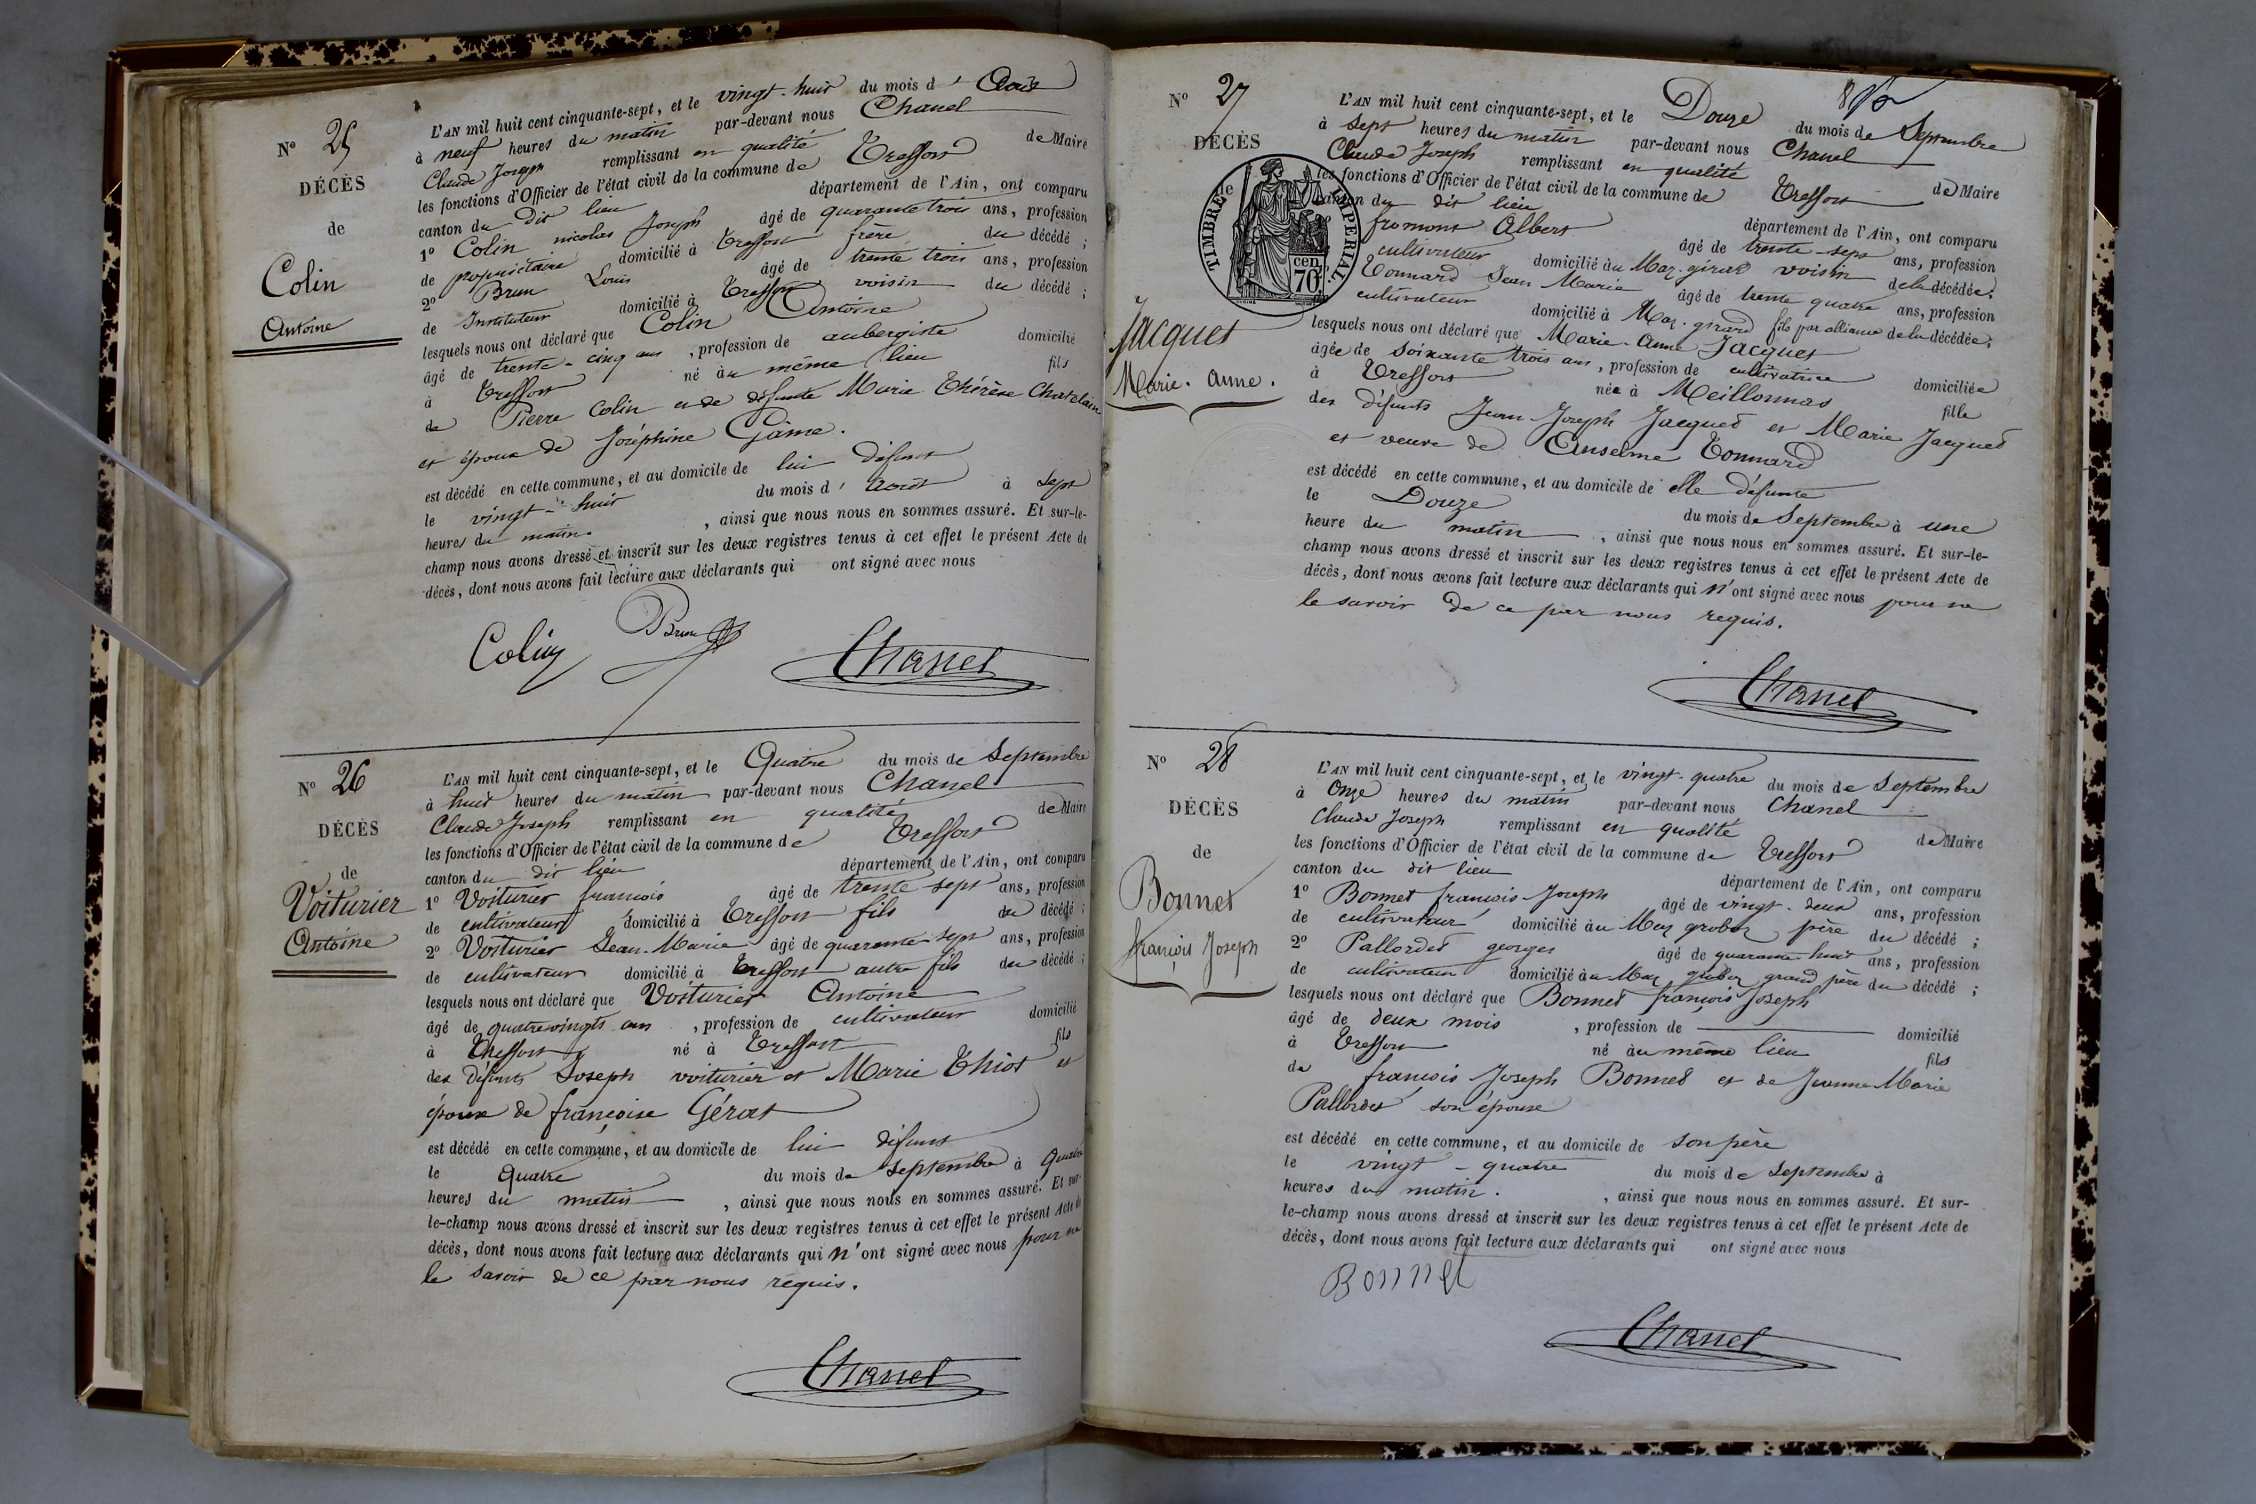 N° 25
DÉCÈS
de
Colin
Antoine
L'AN mil huit cent cinquante-sept, et le vingt-huit du mois d'Août
à neuf heures du matin par-devant nous Chanel
Claude Joseph remplissant en qualité de Maire
les fonctions d'Officier de l'état civil de la commune de Treffort
canton du dit lieu département de l'Ain, ont comparu
1° Colin nicolas Joseph âgé de quarante trois ans, profession
de propriétaire domicilié à Treffort frère du décédé ;
2° Brun Louis âgé de trente trois ans, profession
de Instituteur domicilié à Treffort voisin du décédé ;
lesquels nous ont déclaré que Colin Antoine
âgé de trente-cinq ans , profession de aubergiste domicilié
à Treffort né au même lieu fils
de Pierre Colin et de défunte Marie Thérèse Chatelain
et époux de Joséphine Gâme.
est décédé en cette commune, et au domicile de lui défunt
le vingt-huit du mois d'août à sept
heures du matin. , ainsi que nous nous en sommes assuré. Et sur-le-
champ nous avons dressé et inscrit sur les deux registres tenus à cet effet le présent Acte de
décès, dont nous avons fait lecture aux déclarants qui ont signé avec nous
Colin Brun Chanel
N° 26
DÉCÈS
de
Voiturier
Antoine
L'AN mil huit cent cinquante-sept, et le Quatre du mois de Septembre
à huit heures du matin par-devant nous Chanel
Claude Joseph remplissant en qualité de Maire
les fonctions d'Officier de l'état civil de la commune de Treffort
canton du dit lieu département de l'Ain, ont comparu
1° Voiturier francois âgé de trente sept ans, profession
de cultivateur domicilié à Treffort fils du décédé ;
2° Voiturier Jean-Marie âgé de quarante-sept ans, profession
de cultivateur domicilié à Treffort autre fils du décédé ;
lesquels nous ont déclaré que Voiturier Antoine
âgé de quatrevingts ans , profession de cultivateur domicilié
à Treffort né à Treffort fils
des défunts Joseph voiturier et Marie Thiot et
époux de françoise Gérat
est décédé en cette commune, et au domicile de lui défunt
le Quatre du mois de septembre à Quatre
heures du matin , ainsi que nous nous en sommes assuré. Et sur-
le-champ nous avons dressé et inscrit sur les deux registres tenus à cet effet le présent Acte de
décès, dont nous avons fait lecture aux déclarants qui n'ont signé avec nous pour ne
le savoir de ce par nous requis.
Chanel
N° 27
DÉCÈS
de
TIMBRE IMPÉRIAL.
70 cen.
Jacquet
Marie-Anne.
L'AN mil huit cent cinquante-sept, et le Douze du mois de Septembre
à sept heures du matin par-devant nous Chanel
Claude Joseph remplissant en qualité de Maire
les fonctions d'Officier de l'état civil de la commune de Treffort
canton du dit lieu département de l'Ain, ont comparu
fromont Albert âgé de trente-sept ans, profession
cultivateur domicilié au Maz-girard voisin de la décédée ;
Tonnard Jean Marie âgé de trente quatre ans, profession
cultivateur domicilié à Maz-girard fils par alliance de la décédée ;
lesquels nous ont déclaré que Marie-Anne Jacquet
âgée de soixante trois ans , profession de cultivatrice domiciliée
à Treffort née à Meillonnas fille
des défunts Jean-Joseph Jacquet et Marie Jacquet
et veuve de Anselme Tonnard
est décédé en cette commune, et au domicile de elle défunte
le Douze du mois de Septembre à une
heure du matin , ainsi que nous nous en sommes assuré. Et sur-le-
champ nous avons dressé et inscrit sur les deux registres tenus à cet effet le présent Acte de
décès, dont nous avons fait lecture aux déclarants qui n'ont signé avec nous pour ne
le savoir de ce par nous requis.
Chanel
N° 28
DÉCÈS
de
Bonnet
françois Joseph
L'AN mil huit cent cinquante-sept, et le vingt-quatre du mois de Septembre
à Onze heures du matin par-devant nous Chanel
Claude Joseph remplissant en qualité de Maire
les fonctions d'Officier de l'état civil de la commune de Treffort
canton du dit lieu département de l'Ain, ont comparu
1° Bonnet francois-Joseph âgé de vingt-deux ans, profession
de cultivateur domicilié au Maz groboz père du décédé ;
2° Pallordet georges âgé de quarante-huit ans, profession
de cultivateur domicilié au Maz groboz grand père du décédé ;
lesquels nous ont déclaré que Bonnet françois Joseph
âgé de deux mois , profession de domicilié
à Treffort né au même lieu fils
de francois Joseph Bonnet et de Jeanne-Marie
Pallordet son épouse
est décédé en cette commune, et au domicile de son père
le vingt-quatre du mois de septembre à
heures du matin. , ainsi que nous nous en sommes assuré. Et sur-
le-champ nous avons dressé et inscrit sur les deux registres tenus à cet effet le présent Acte de
décès, dont nous avons fait lecture aux déclarants qui ont signé avec nous
Bonnet
Chanel